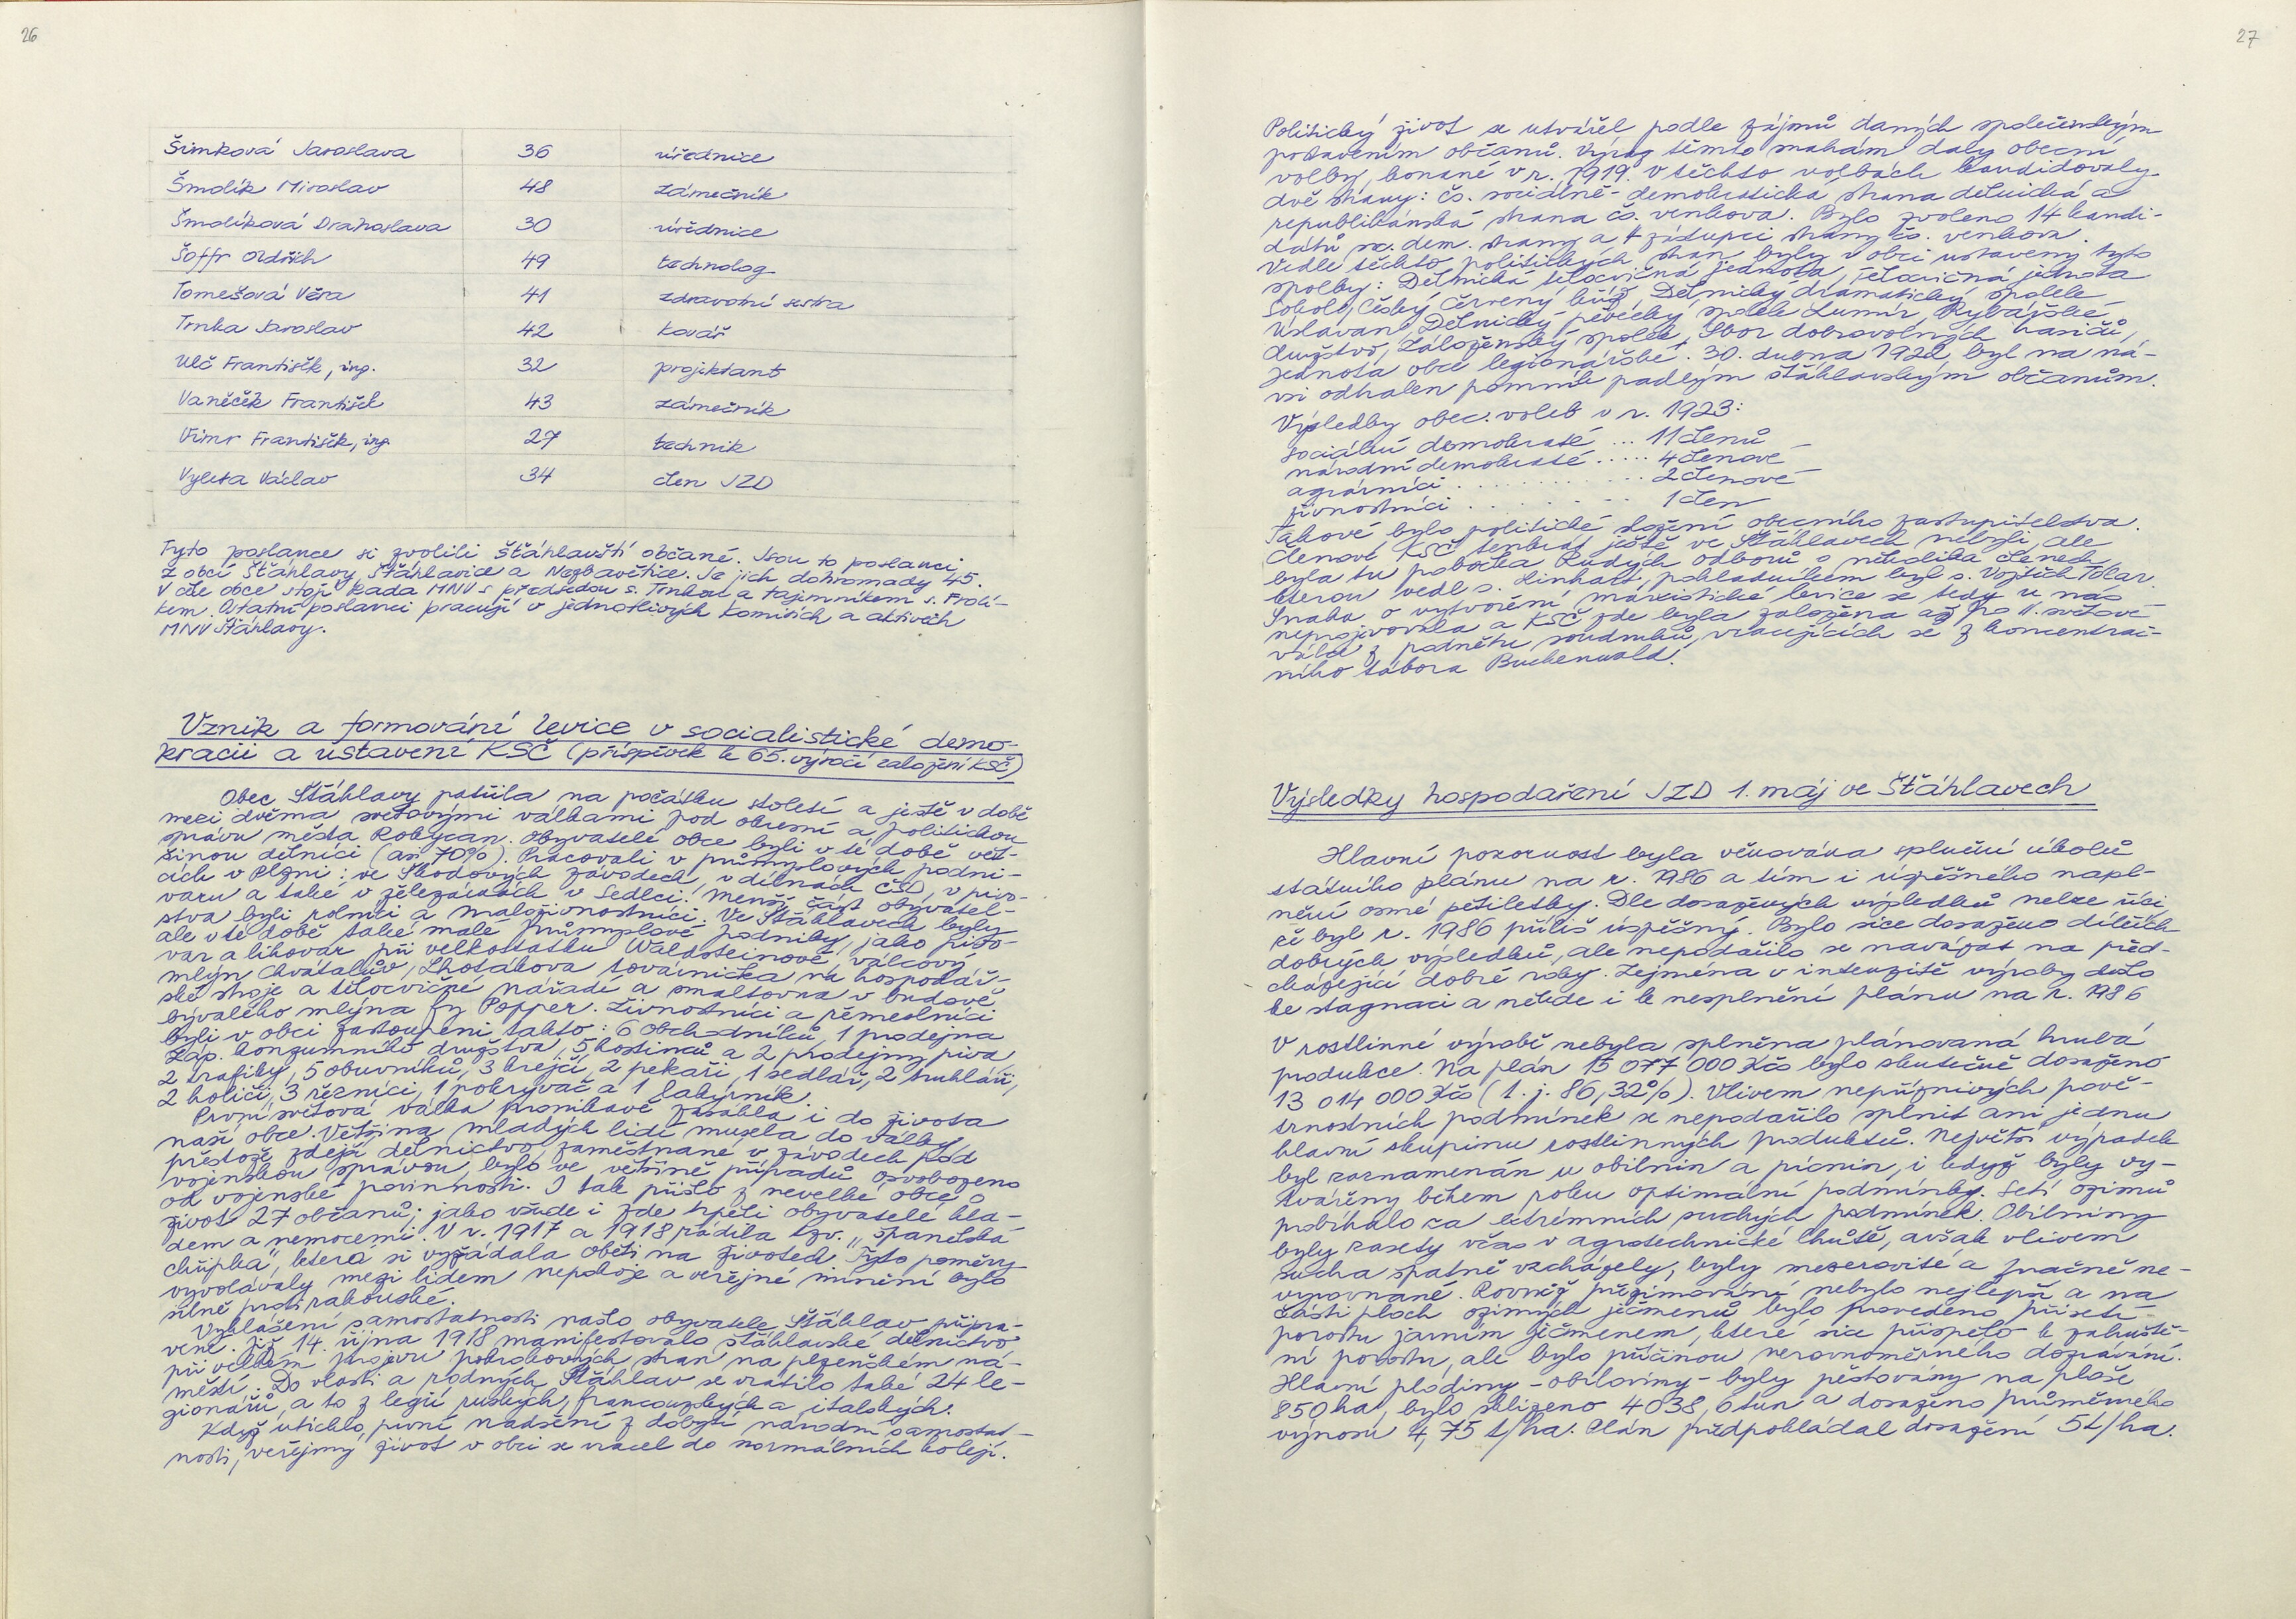 26
Šimková Jaroslava 36 úřednice
Šmolík Miroslav 48 zámečník
Šmolíková Drahoslava 30 úřednice
Šoffr Oldřich 49 technolog
Tomešová Věra 41 zdravotní sestra
Trnka Jaroslav 42 kovář
Ulč František, ing. 32 projektant
Vaněček František 43 zámečník
Vimr František, ing. 27 technik
Vyleta Václav 34 člen JZD
Tyto poslance si zvolili šťáhlavští občané. Jsou to poslanci
z obcí Šťáhlavy, Šťáhlavice a Nezbavětice. Je jich dohromady 45.
V čele obce stojí Rada MNV s předsedou s. Trnkou a tajemníkem s. Frolí-
kem. Ostatní poslanci pracují v jednotlivých komisích a aktivech
MNV Šťáhlavy.
Vznik a formování levice v socialistické demo-
kracii a ustavení KSČ (příspěvek k 65. výročí založení KSČ)
Obec Šťáhlavy patřila na počátku století a ještě v době
mezi dvěma světovými válkami pod okresní a politickou
správu města Rokycan. Obyvatelé obce byli v té době vět-
šinou dělníci (asi 70%). Pracovali v průmyslových podni-
cích v Plzni: ve Škodových závodech, v dílnách ČSD, v pivo-
varu a také v železárnách v Sedlci. Menší část obyvatel-
stva byli rolníci a maloživnostníci. Ve Šťáhlavech byly
ale v té době také malé průmyslové podniky, jako pivo-
var a lihovar při velkostatku Waldsteinově, válcový
mlýn Chvátalův, Lhotákova továrnička na hospodář-
ské stroje a tělocvičné nářadí a smaltovna v budově
bývalého mlýna fy Popper. Živnostníci a řemeslníci
byli v obci zastoupeni takto: 6 obchodníků, 1 prodejna
záp. konzumního družstva, 5 hostinců a 2 prodejny piva
2 trafiky, 5 obuvníků, 3 krejčí, 2 pekaři, 1 sedlář, 2 truhláři,
2 holiči, 3 řezníci, 1 pokrývač a 1 lakýrník.
První světová válka pronikavě zasáhla i do života
naší obce. Většina mladých lidí musela do války
přestože zdejší dělnictvo, zaměstnané v závodech pod
vojenskou správou, bylo ve většině případů osvobozeno
od vojenské povinnosti. I tak přišlo z nevelké obce o
život 27 občanů; jako všude i zde trpěli obyvatelé hla-
dem a nemocemi. V r. 1917 a 1918 řádila tzv. „španělská
chřipka", která si vyžádala oběti na životech. Tyto poměry
vyvolávaly mezi lidem nepokoje a veřejné mínění bylo
silně protirakouské.
Vyhlášení samostatnosti našlo obyvatele Šťáhlav připra-
vené. Již 14. října 1918 manifestovalo šťáhlavské dělnictvo
při velkém projevu pokrokových stran na plzeňském ná-
městí. Do vlasti a rodných Šťáhlav se vrátilo také 24 le-
gionářů, a to z legií ruských, francouzských a italských.
Když utichlo první nadšení z dobytí národní samostat-
nosti, veřejný život v obci se vracel do normálních kolejí.
27
Politický život se utvářel podle zájmů daných společenským
postavením občanů. Výraz těmto snahám daly obecní
volby, konané v r. 1919. V těchto volbách kandidovaly
dvě strany: čs. sociálně-demokratická strana dělnická a
republikánská strana čs. venkova. Bylo zvoleno 14 kandi-
dátů soc. dem. strany a 4 zástupci strany čs. venkova.
Vedle těchto politických stran byly v obci ustaveny tyto
spolky: Dělnická tělocvičná jednota, Tělocvičná jednota
Sokol, Český červený kříž, Dělnický dramatický spolek
Úslavan, Dělnický pěvecký spolek Lumír, Rybářské
družstvo, Záloženský spolek, Sbor dobrovolných hasičů,
Jednota obce legionářské. 30. dubna 1922 byl na ná-
vsi odhalen pomník padlým šťáhlavským občanům.
Výsledky obec. voleb v r. 1923:
sociální demokraté ... 11 členů
národní demokraté ..... 4 členové
agrárníci ............ 2 členové
živnostníci ........ 1 člen
Takové bylo politické složení obecního zastupitelstva.
Členové KSČ tenkrát ještě ve Šťáhlavech nebyli, ale
byla tu pobočka Rudých odborů o několika členech,
kterou vedl s. Linhart, pokladníkem byl s. Vojtěch Tolar.
Snaha o vytvoření marxistické levice se tedy u nás
neprojevovala a KSČ zde byla založena až po II. světové
válce z podnětu soudruhů, vracejících se z koncentrač-
ního tábora Buchenwald.
Výsledky hospodaření JZD 1. máj ve Šťáhlavech
Hlavní pozornost byla věnována splnění úkolů
státního plánu na r. 1986 a tím i úspěšného napl-
nění osmé pětiletky. Dle dosažených výsledků nelze říci
že byl r. 1986 příliš úspěšný. Bylo sice dosaženo dílčích
dobrých výsledků, ale nepodařilo se navázat na před-
cházející dobré roky. Zejména v intenzitě výroby došlo
ke stagnaci a někde i k nesplnění plánu na r. 1986
V rostlinné výrobě nebyla splněna plánovaná hrubá
produkce. Na plán 15 077 000 Kčs bylo skutečně dosaženo
13 014 000 Kčs (t. j. 86,32%). Vlivem nepříznivých pově-
trnostních podmínek se nepodařilo splnit ani jednu
hlavní skupinu rostlinných produktů. Největší výpadek
byl zaznamenán u obilnin a pícnin, i když byly vy-
tvářeny během roku optimální podmínky. Setí ozimů
probíhalo za extrémních suchých podmínek. Obilniny
byly zasety včas v agrotechnické lhůtě, avšak vlivem
sucha špatně vzcházely, byly mezerovité a značně ne-
vyrovnané. Rovněž přezimování nebylo nejlepší a na
části ploch ozimých ječmenů bylo provedeno přisetí
porostu jarním ječmenem, které sice přispělo k zahuště-
ní porostu, ale bylo příčinou nerovnoměrného dozrávání.
Hlavní plodiny - obiloviny - byly pěstovány na ploše
850 ha, bylo sklizeno 4038,6 tun a dosaženo průměrného
výnosu 4,75 t/ha. Plán předpokládal dosažení 5t/ha.